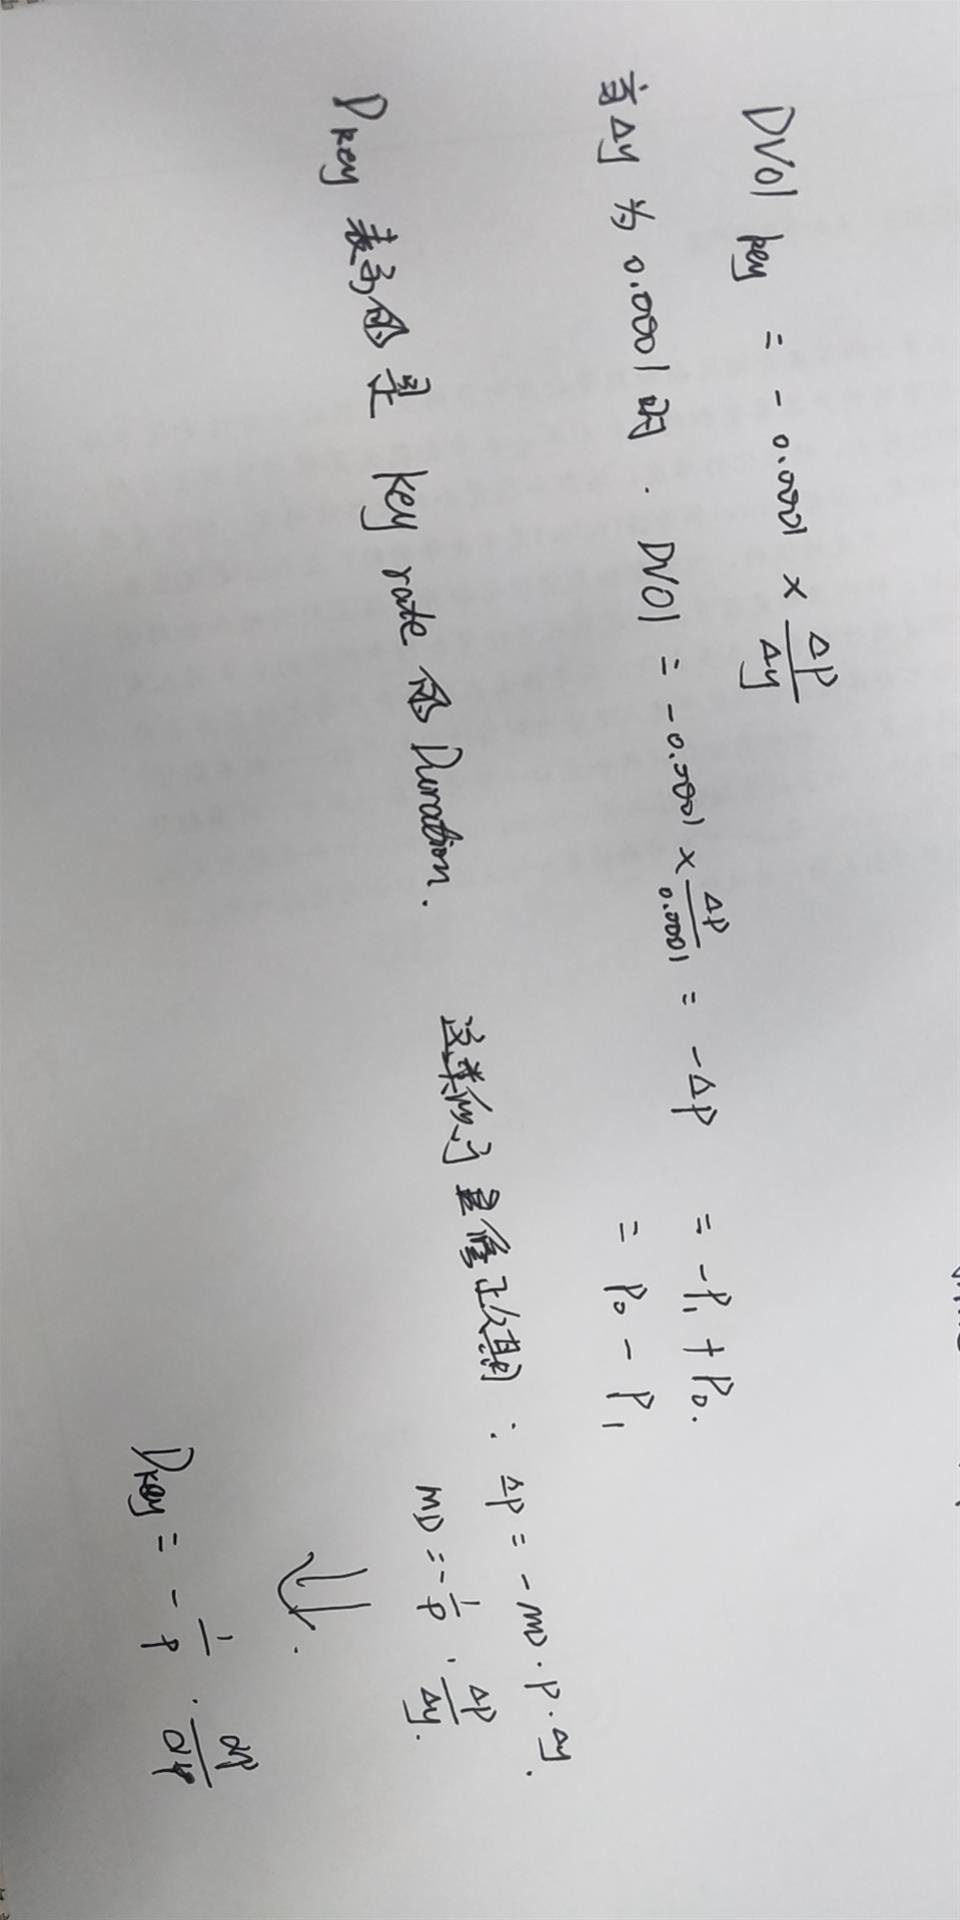 DV01 key = - 0.0001 × ΔP/Δy
当Δy 为 0.0001时. DV01 = -0.0001 × ΔP/0.0001 = -ΔP = -P₁ + P₀.
= P₀ - P₁
Dkey 表示的是 key rate 的 Duration.
这类似于是修正久期 : ΔP = - MD · P · Δy.
MD = - 1/P · ΔP/Δy.
⇓.
Dkey = - 1/P · ∂P/∂y